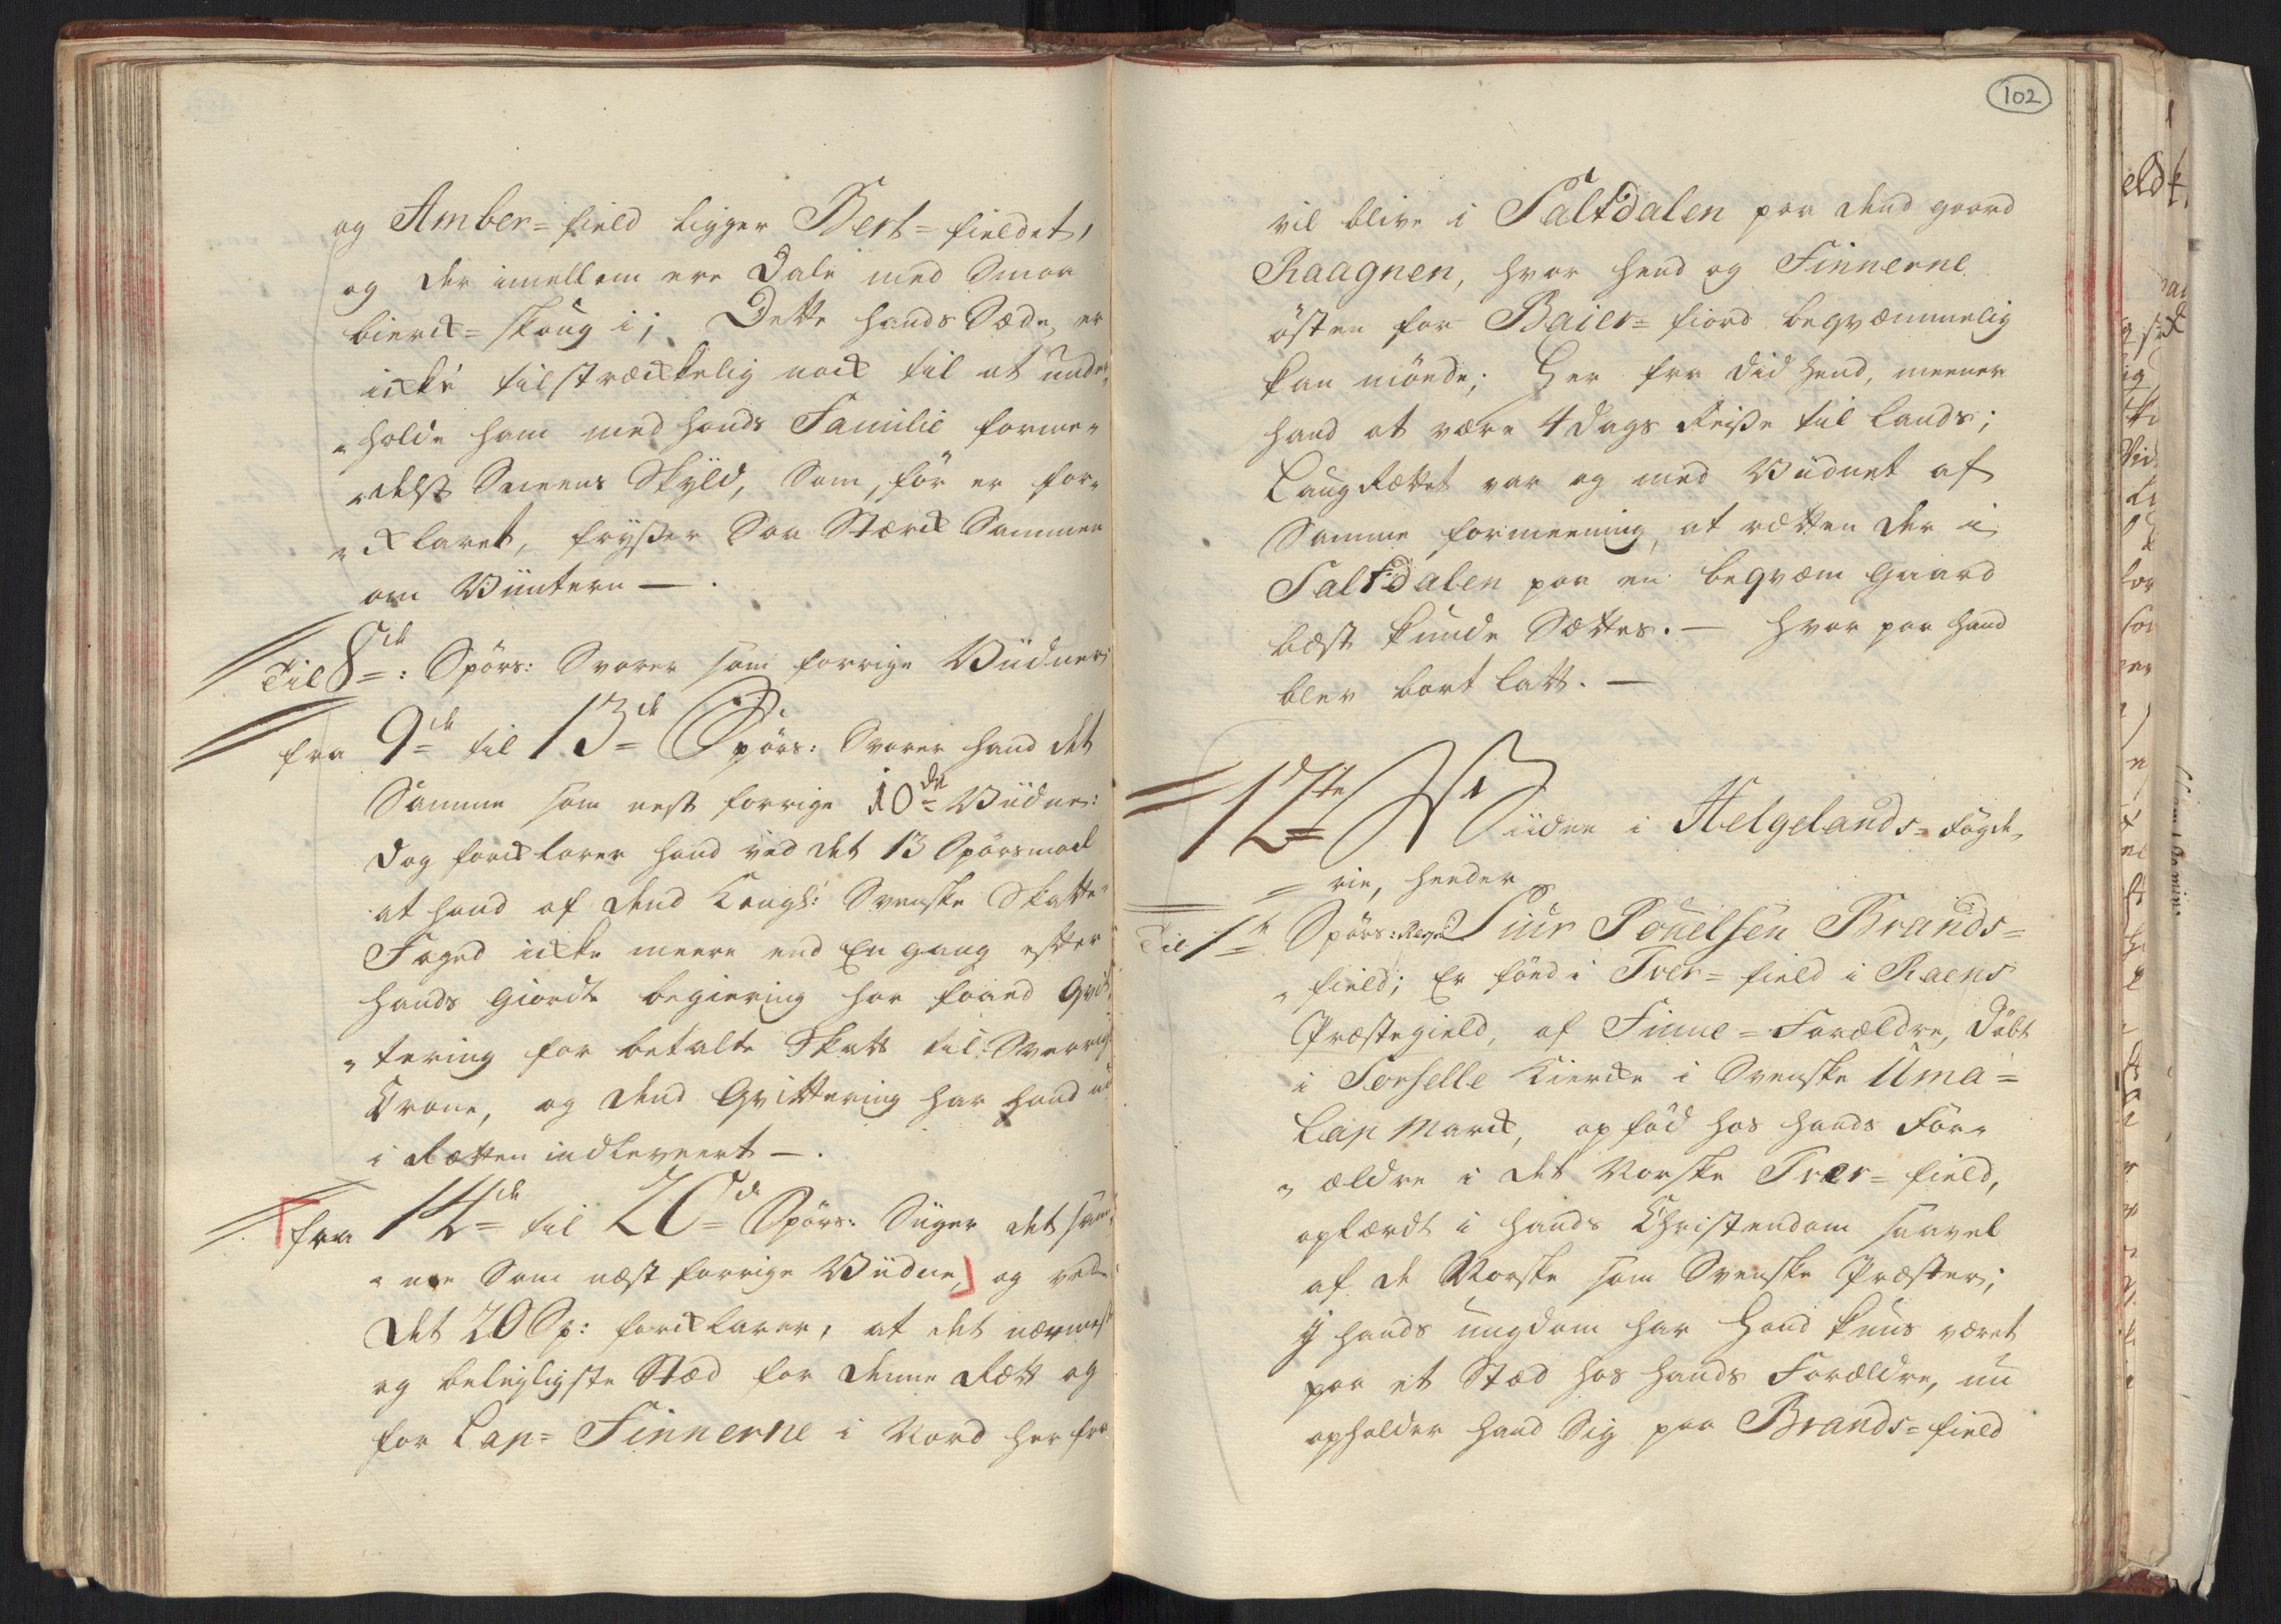 og Amber= field ligger Bert= fieldet,
og der imellem ere Dale med Smaa
bierck= skoug i; Dette hands Sæde, er
icke tilstrækkelig nock til at under„
„holde ham med hands Familie forme„
„delst Sneens Skyld, Som, för er for„
„cklaret, fryßer Saa Stærck Sammen
om Viinteren — .
Til 8de =: Spörs: Svarer som forrige Viidner;
fra 9de = til 13de = Spörs: Svarer hand det
Samme som nest forrige 10de = Viidne:
dog forcklarer hand ved det 13 Spörsmael
at hand af dend Kongl: Svenske Skatte„
Foged icke meere end En gang efter
hands giorde begiering har faaed Qvit„
„tering for betalte Skatt til Sverrigs
Krone, og dend Qvittering har hand
i Rætten indleveert — .
fra 14de = til 20de = Spörs: Siiger det sam„
„me Som næst forrige Viidne, og ved
det 20 Sp: forcklarer, at det nærmest
og beleyligste Stæd for denne Rætt og
for Lap= Finnerne i Nord her fra
102
vil blive i Saltdalen paa dend gaard
Raagnen, hvor hend og Finnerne
östen for Baier= fiord beqvæmmelig
kan möede; Her fra did hend, meener
hand at være 4 Dags Reiße til Lands;
LaugRættet var og med Viidnet af
Samme formeening, at rætten der i
Saltdalen paa en beqvæm Gaard
best kunde Sættes. — hvor paa hand
blev bort latt. —
12te = Viidne i Helgelands= Fögde„
= rie, heeder
Til 1te = Spörs: Siur Pouelsen Brands=
„field; Er föed i Tver= field i Raens
Præstegield, af Finne= Forældre, Döbt
i Sorselle Kiercke i Svenske Uma=
Lap Marck, opföd hos hands For„
„ældre i det Norske Tvær= field,
oplærdt i hands Christendom saavel
af de Norske som Svenske Præster;
J hands ungdom har Hand kuns været
paa et Stæd hos hands Forældre, nu
opholder hand Sig paa Brands= field